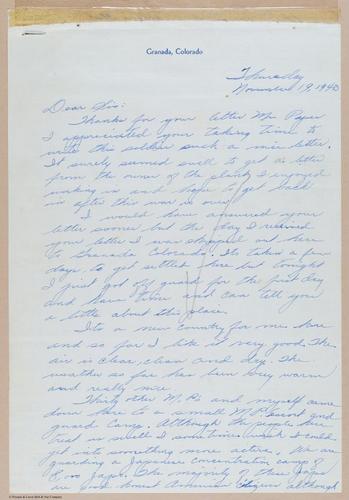 Granada, Colorado
Thursday
November 19, 1940
Dear Sir:
Thanks for your letter Mr. Pyper
I appreciated your taking time to
write this soldier such a nice letter.
It surely seemed swell to get a letter
from the owner of the plant I enjoyed
working in and hope to get back
in after this war is over.
I would have answered your
letter sooner but the day I received
your letter I was shipped out here
to Granada Colorado. Its taken a few
days to get settled here but tonight
I just got off guard for the first day
and have time and can tell you
a little about this place.
Its a new country for me here
and so far I like it very good. The
air is clear, clean and dry. The
weather so far has been very warm
and really nice.
Thirty other M.P.s and myself came
down here to a small M.P. Escort and
guard Camp. Although the people here
treat us swell I sometimes wish I could
get into something more active. We are
guarding a Japanese Concentration camp of
Japs. The majority of these Japs
are good honest American citizens although